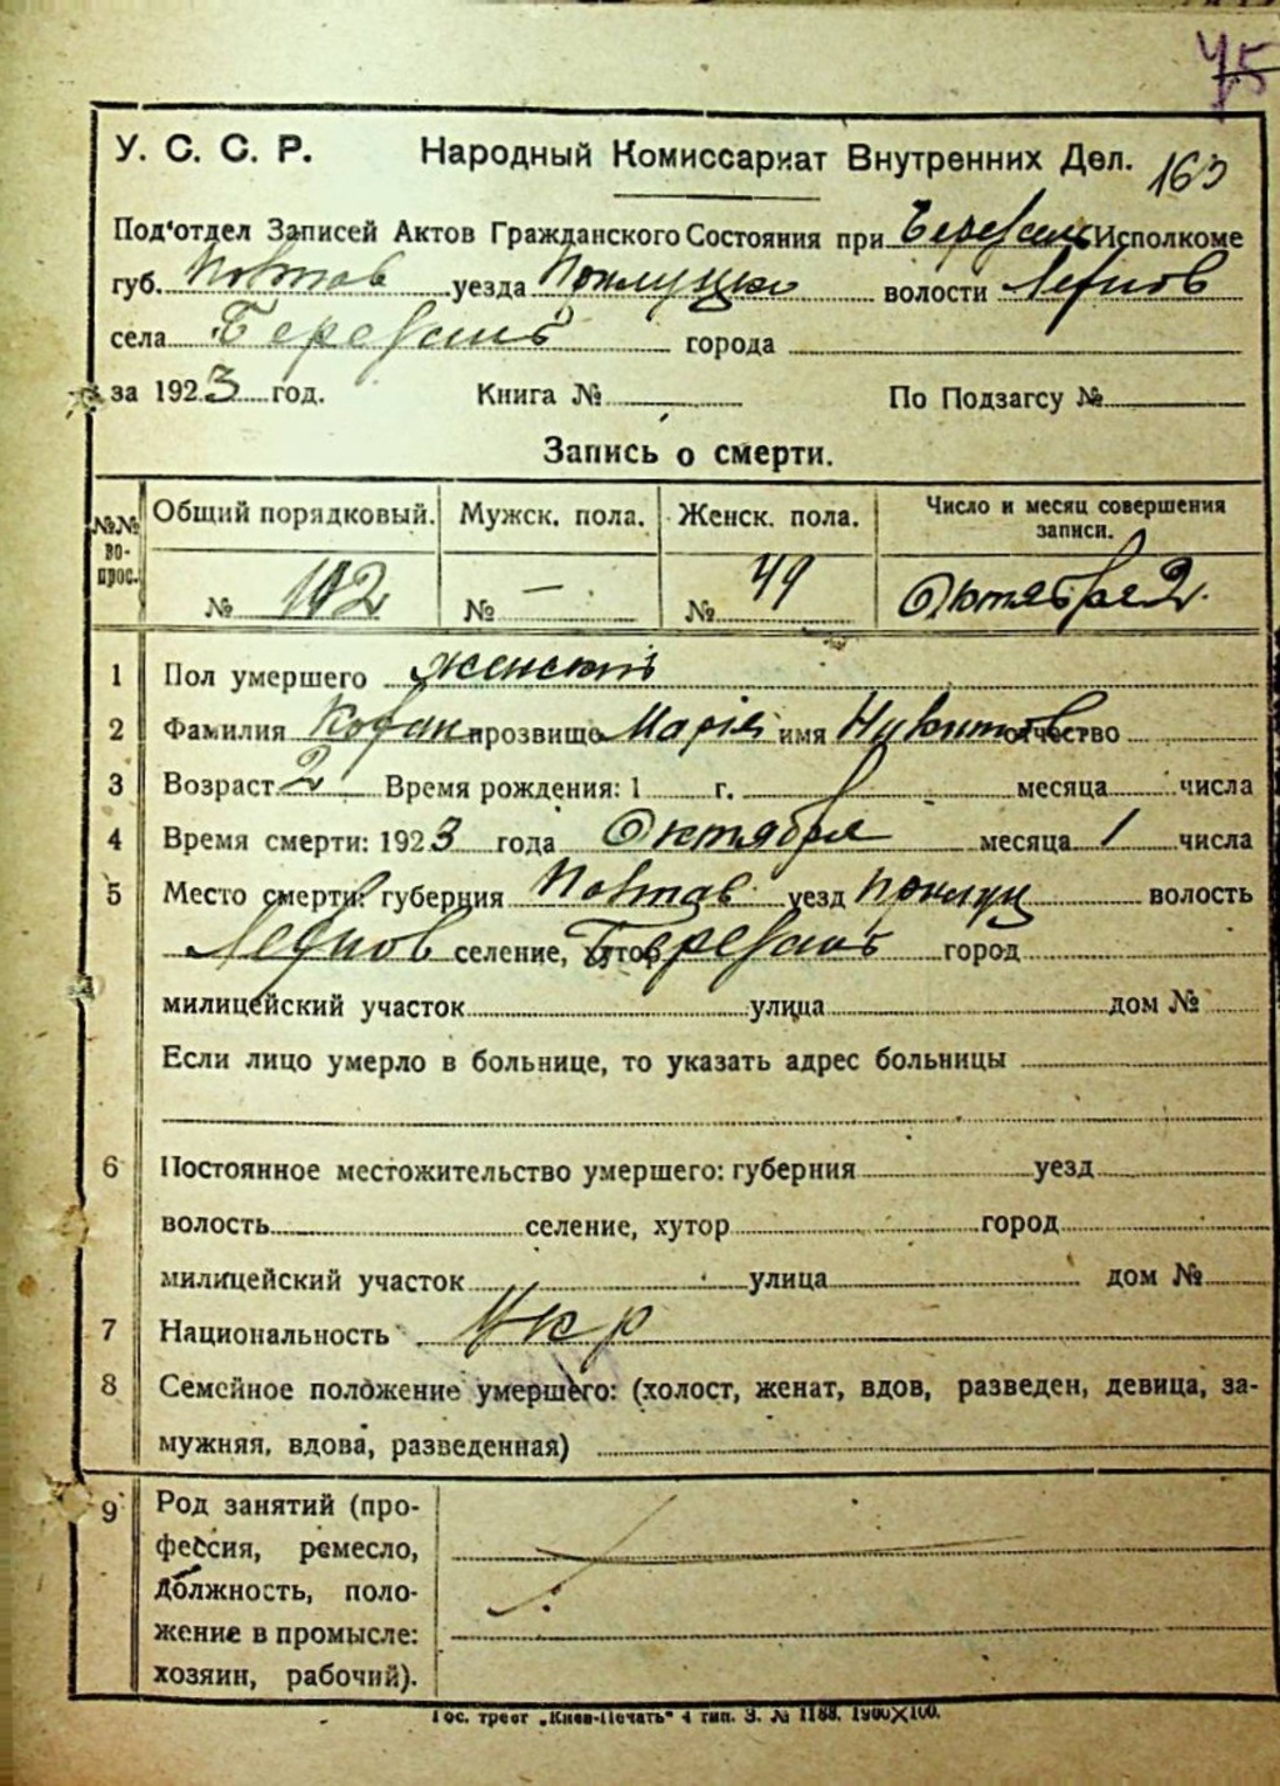 75
У. С. С. Р. Народный Комиссариат Внутренних Дел. 163
Под'отдел Записей Актов Гражданского Состояния при Исполкоме
губ. Полтав уезда Прилуцко волости
села города
за 1923 год. Книга № По Подзагсу №
Запись о смерти.
№№ вопрос. Общий порядковый. Мужск. пола. Женск. пола. Число и месяц совершения записи.
№ 102 № — № 49 Октября 2.
1 Пол умершего женский
2 Фамилия прозвище Марія имя отчество
3 Возраст 2 Время рождения: 1 г. месяца числа
4 Время смерти: 1923 года Октября месяца 1 числа
5 Место смерти: губерния Полтав уезд Прилуц волость
селение, хутор город
милицейский участок улица дом №
Если лицо умерло в больнице, то указать адрес больницы
6 Постоянное местожительство умершего: губерния уезд
волость селение, хутор город
милицейский участок улица дом №
7 Национальность Укр
8 Семейное положение умершего: (холост, женат, вдов, разведен, девица, за-
мужняя, вдова, разведенная)
9 Род занятий (про-
фессия, ремесло,
должность, поло-
жение в промысле:
хозяин, рабочий).
Гос. трест „Киев-Печать“ 4 тип. З. № 1188. 1900×100.